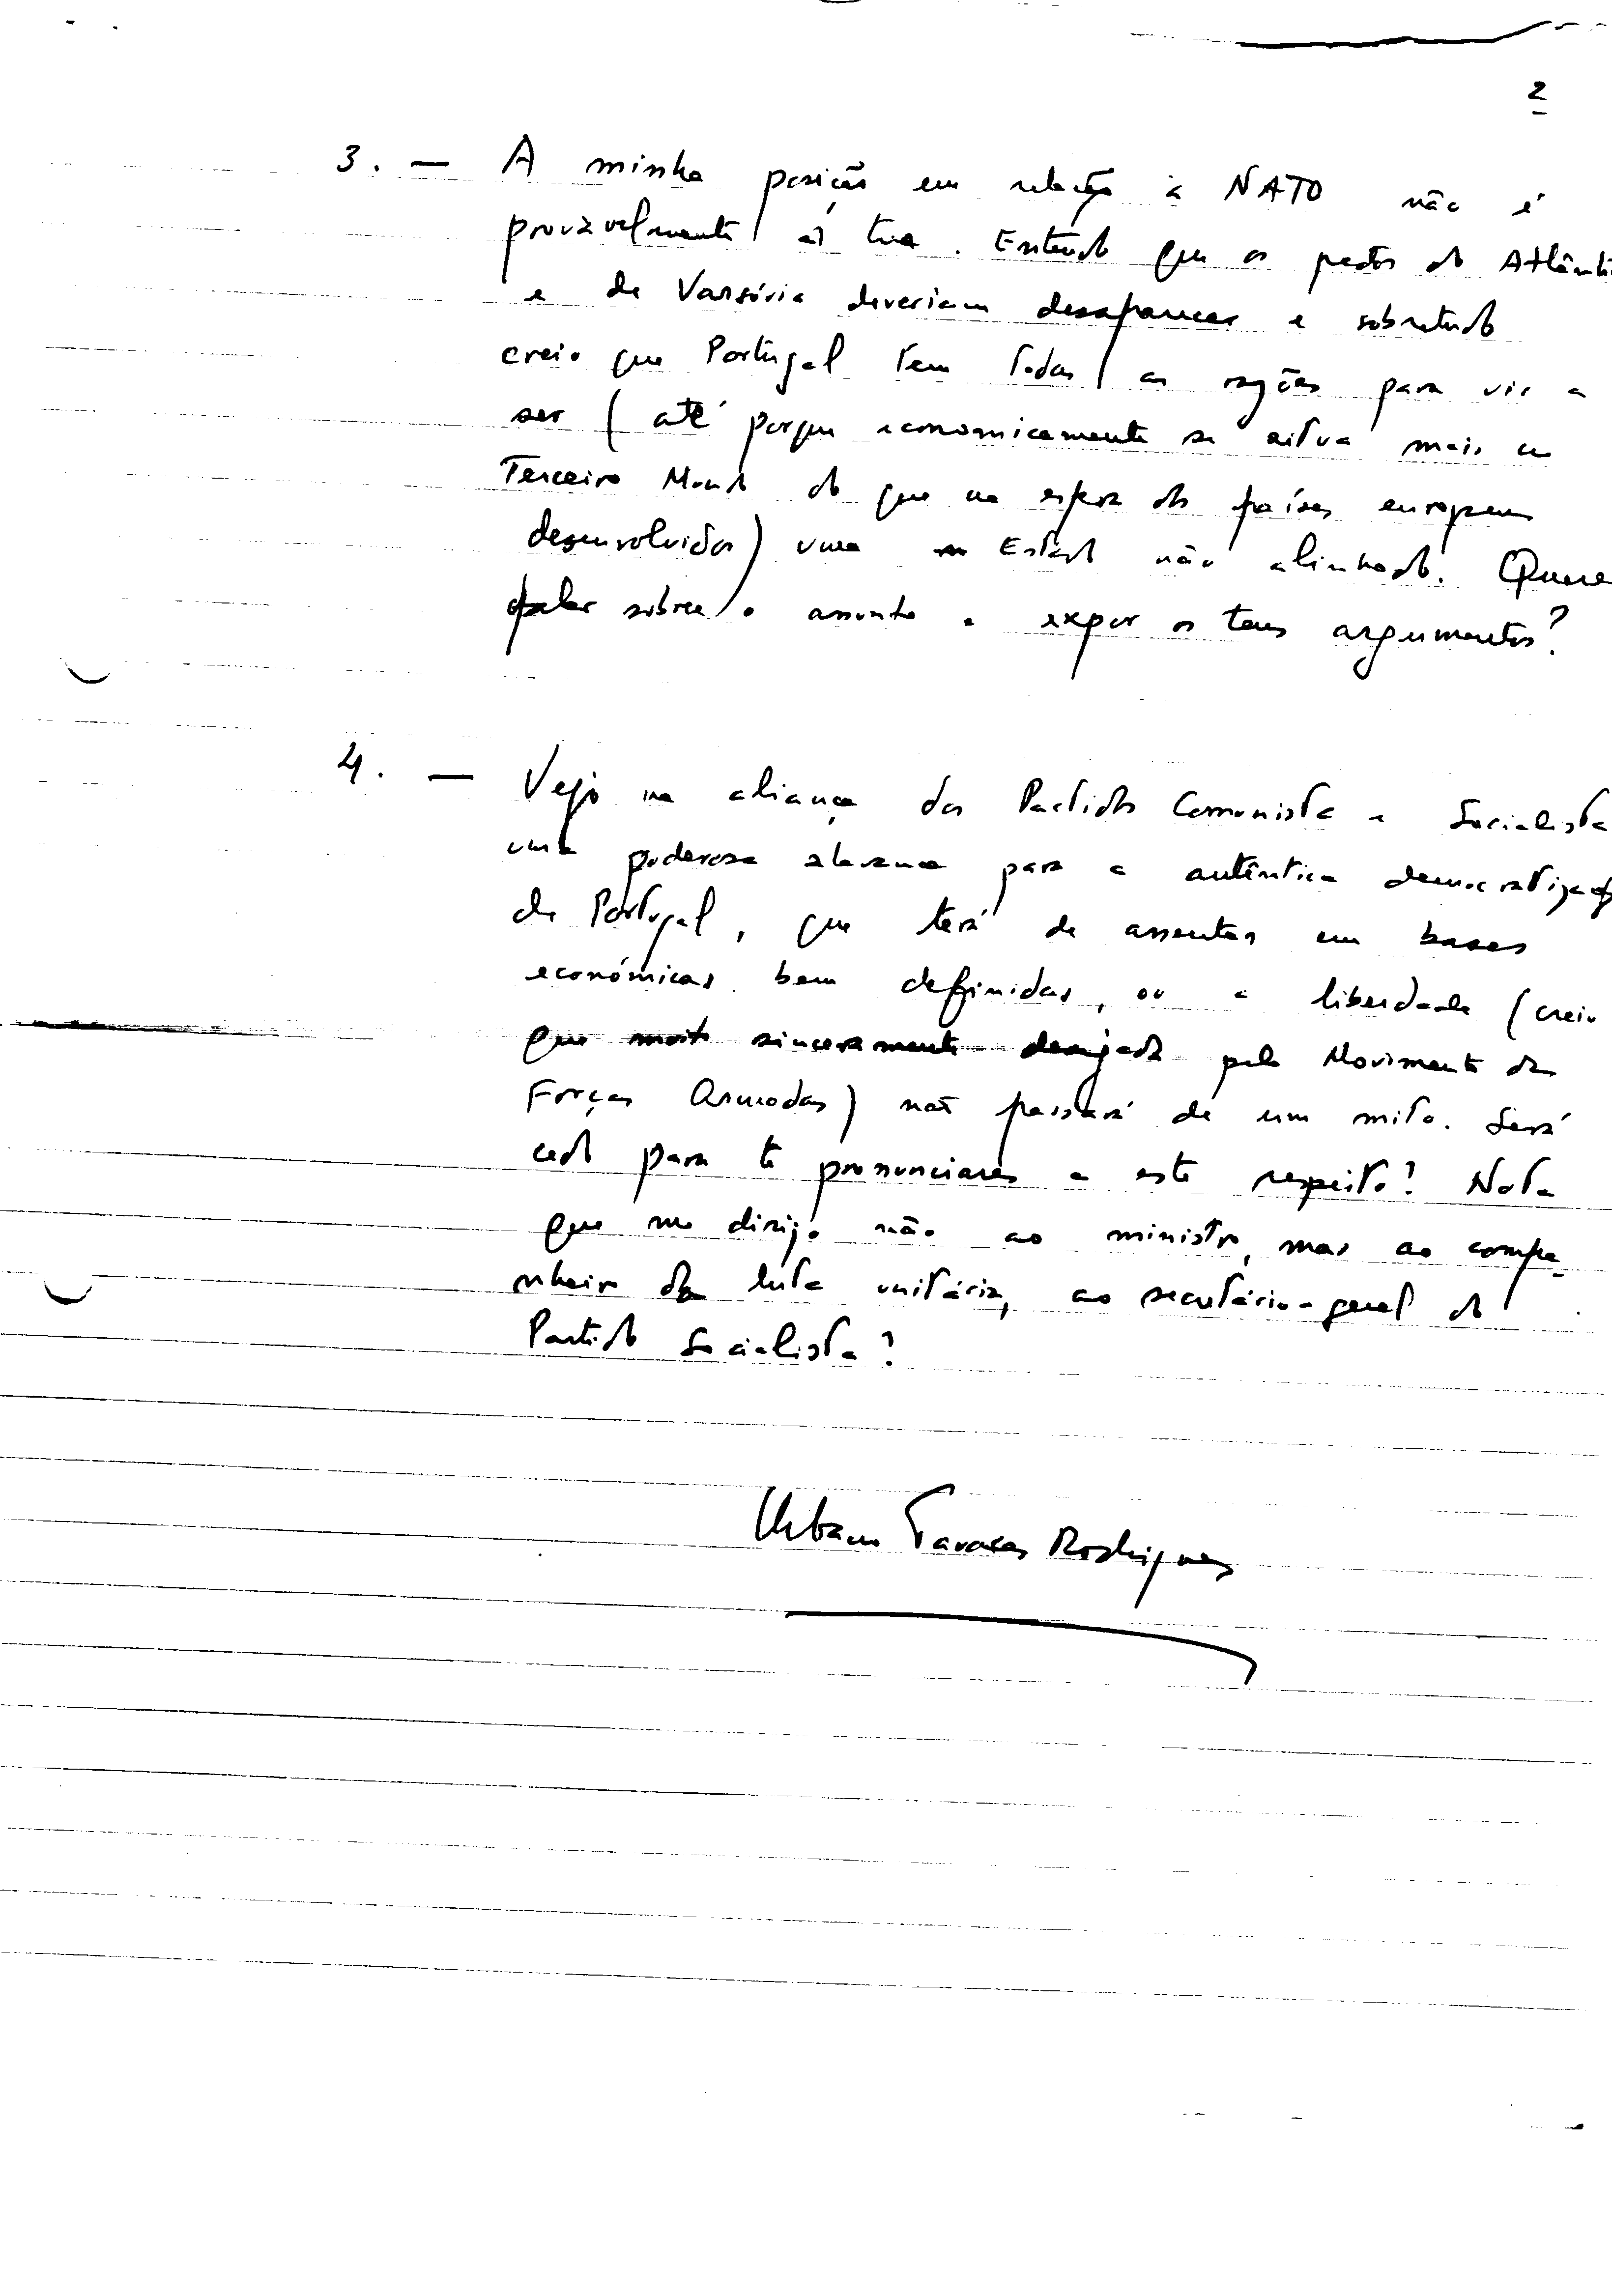 2
3. — A minha posição em relação à NATO não é
provàvelmente a tua. Entendo que os pactos do Atlânti
e de Varsóvia deveriam desaparecer e sobretudo
creio que Portugal tem todas as razões para vir a
ser (até porque economicamente se situa mais no
Terceiro Mundo do que na esfera dos países europeus
desenvolvidos) um Estado não alinhado. Queres
falar sobre o assunto e expor os teus argumentos?
4. — Vejo na aliança dos Partidos Comunista e Socialista
uma poderosa alavanca para a autêntica democratização
de Portugal, que terá de assentar em bases
económicas bem definidas, ou a liberdade (creio
que muito sinceramente desejada pelo Movimento das
Forças Armadas) não passará de um mito. Será
cedo para te pronunciares a este respeito? Nota
que me dirijo não ao ministro, mas ao compa-
nheiro da luta unitária, ao secretário-geral do
Partido Socialista?
Urbano Tavares Rodrigues